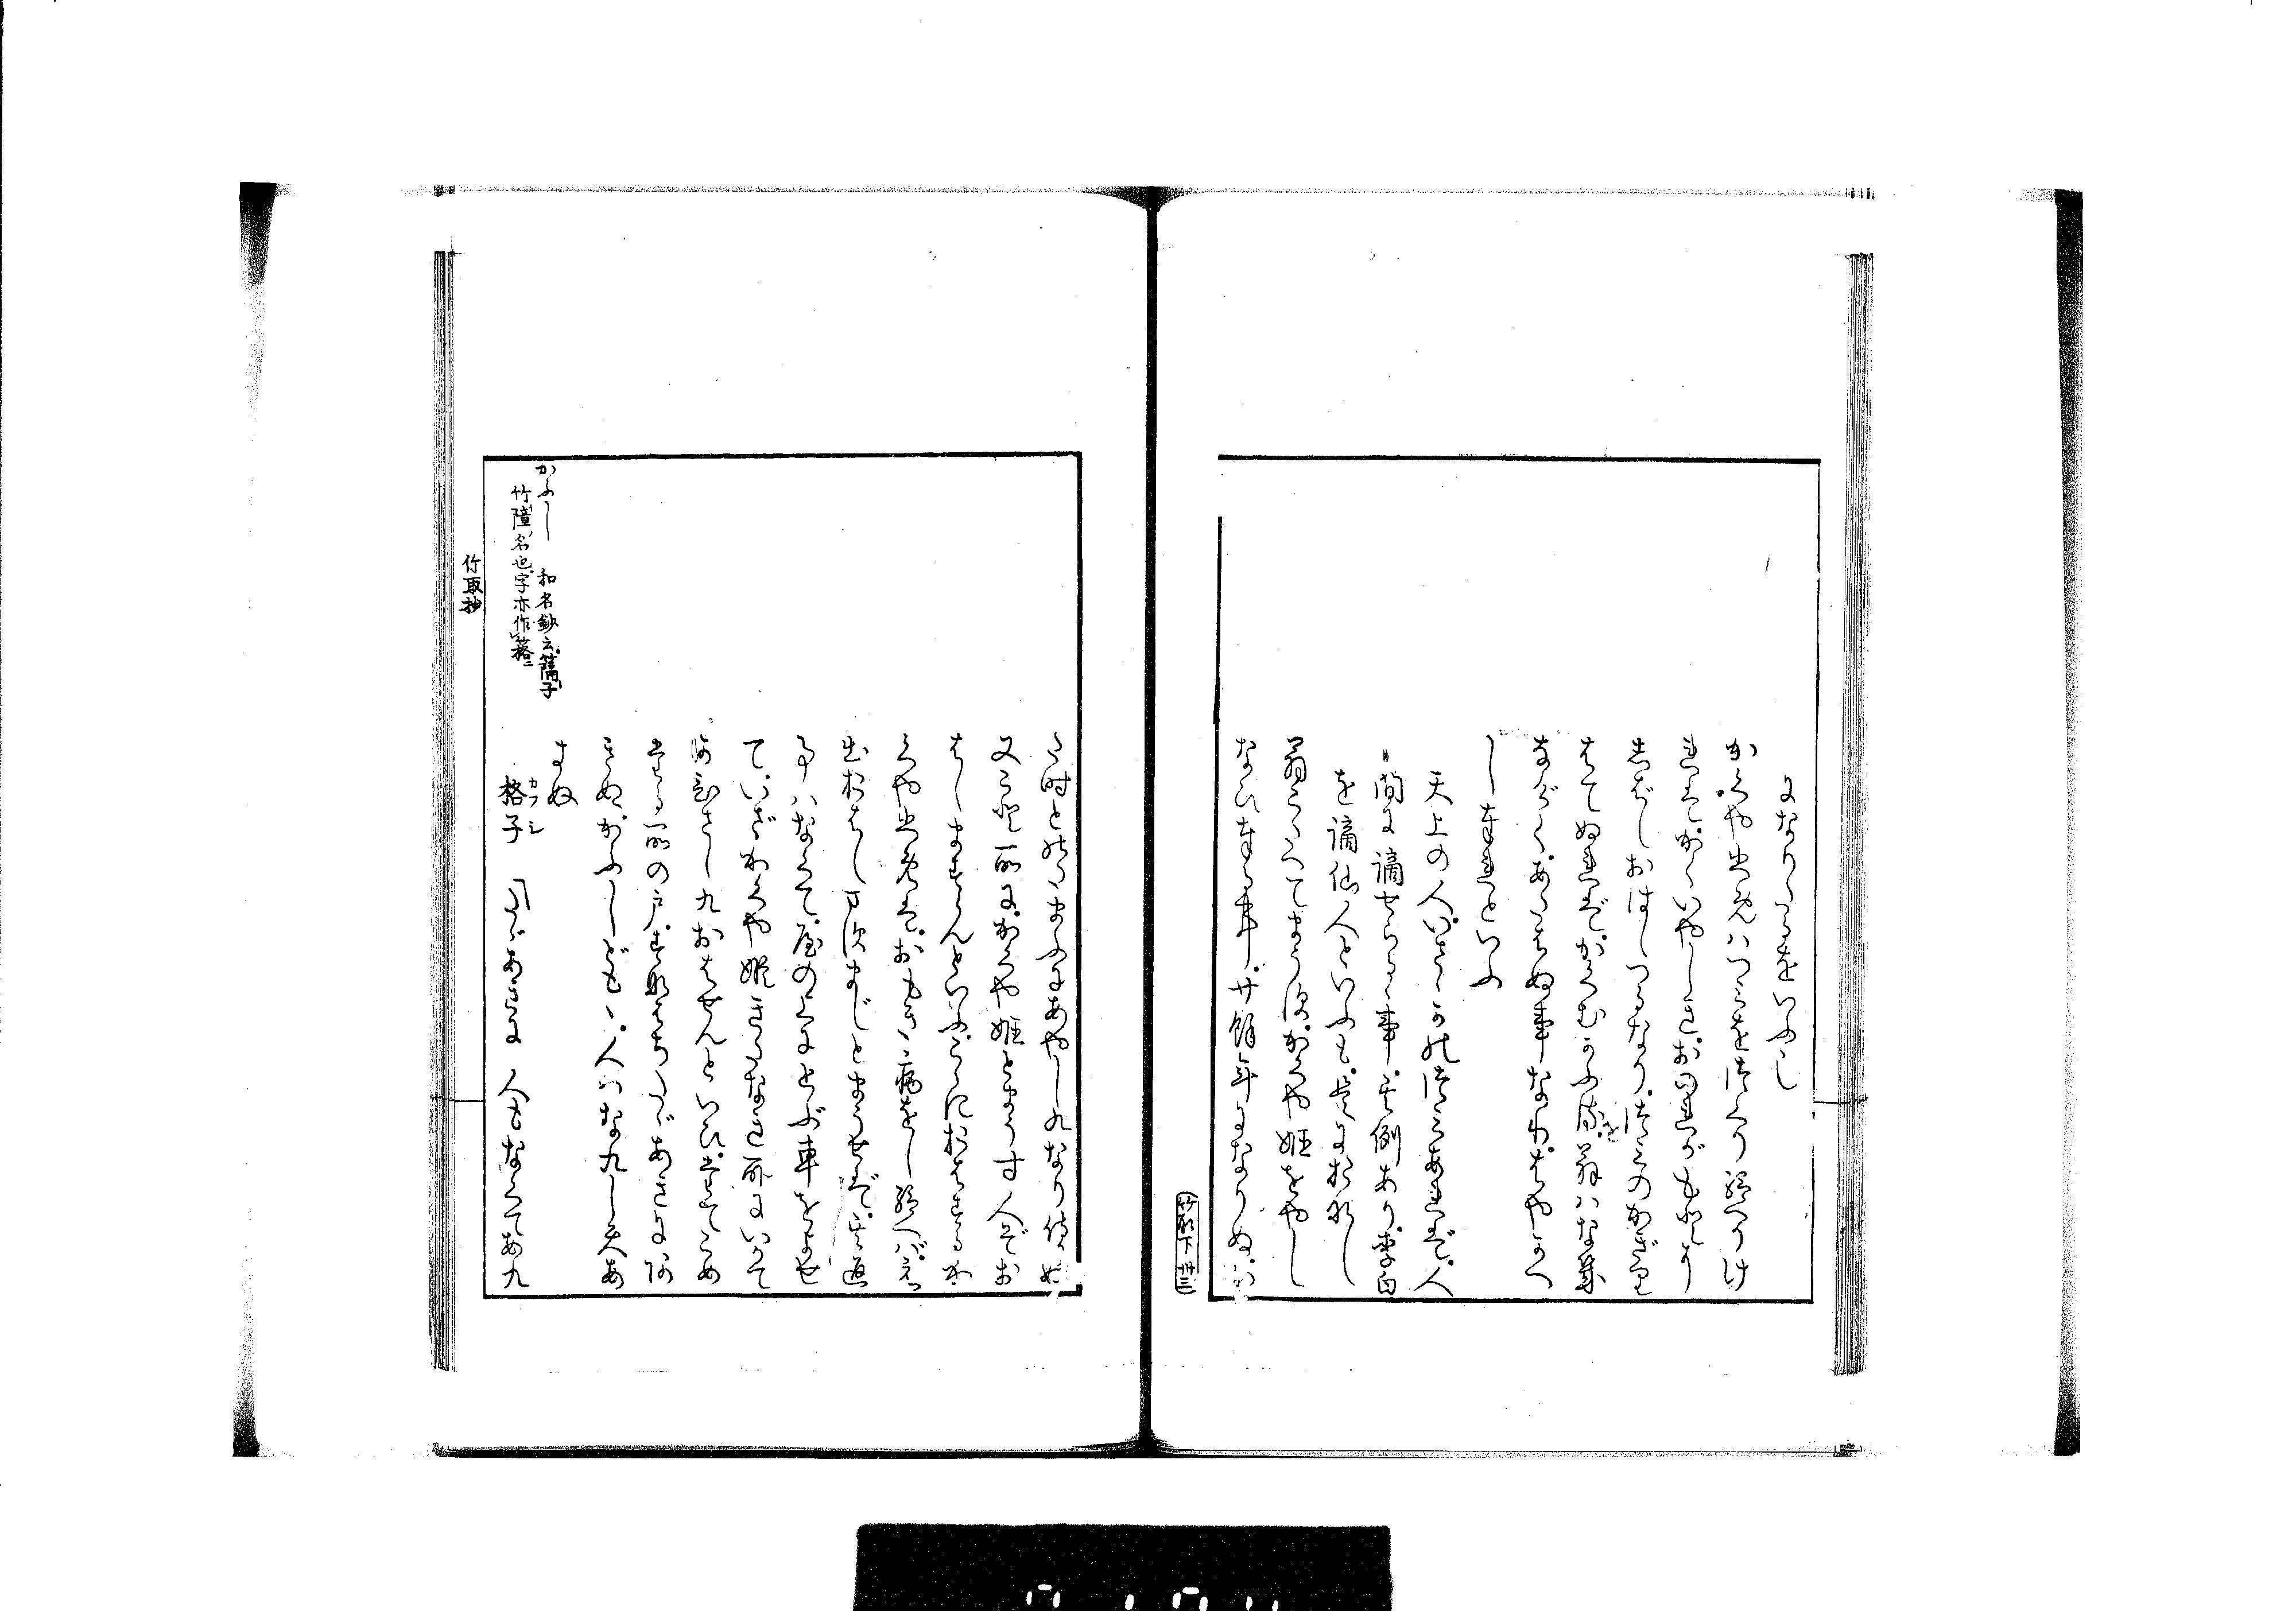 になりたるをいふ也
かくや姫ハつみをつくり給へりけ
れば。かくいやしき。おのれがもとにそ
しばしおはしつるなり。つみのかぎり
はてぬれば。かくむかふるを。翁ハなき
なげく。あたはぬ事なり。はやかへ
し奉れといふ
天上の人。いさゝかのつみあれば。人
間に謫せらるゝ事。其例あり。李白
を謫仙人といふも。是におなし
翁こたへてまうす。かくや姫をやし
なひ奉る事。廿餘年になりぬ。か
た時とのたまふにあやしくなり侍ぬ
又こと所に。かくや姫とまうす人ぞお
はしますらんといふ。こゝにおはするか
くや姫は。おもき病をし給へば。え
出おはしますまじとまうせば。其返
事ハなくて。屋の上にとぶ車をよせ
て。いざかくや姫きたなき所にいかて
か久しくおはせんといひ。たてこめ
たる所の戸。すなはちたゞあきにあ
きぬ。かふしどもゝ。人ハなくしてあ
きぬ
格子カフシ たゞあきに 人もなくてあく
かふし 和名鈔云。篇子
竹障名也。字亦作簬
竹取抄
竹取下 卅三